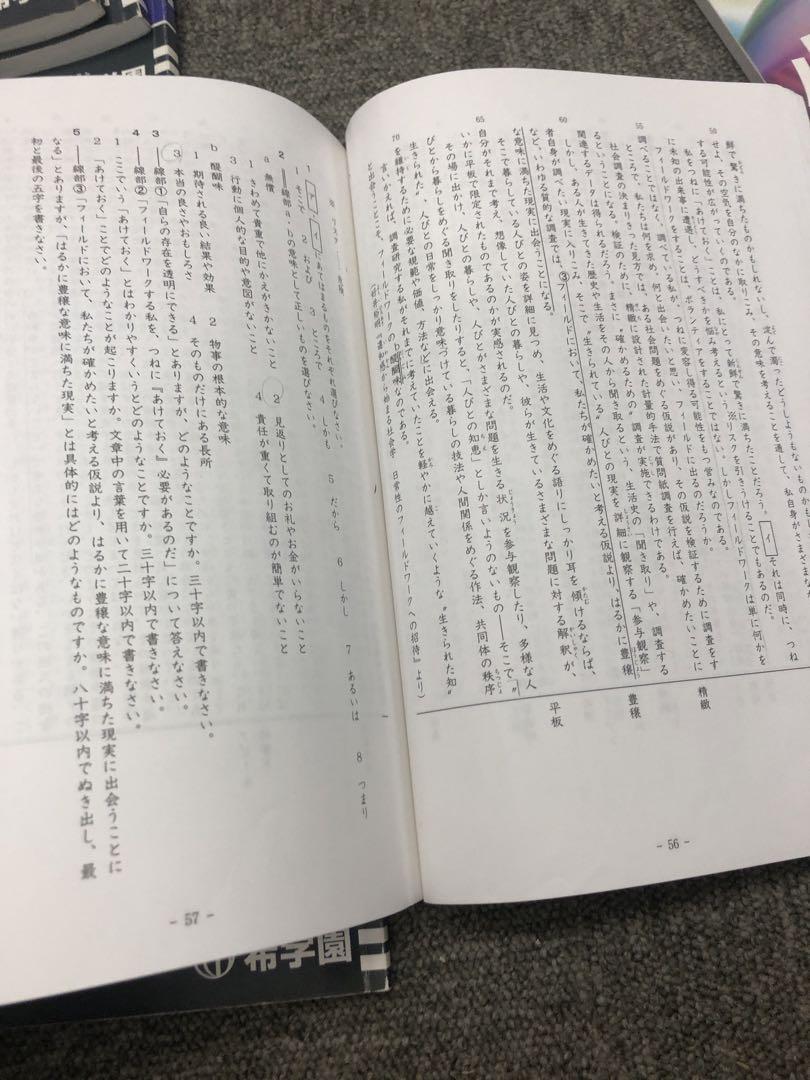 鮮で驚きに満ちたものかもしれないし、淀んで濁ったどうしようもないものかも
せよ、その空気を自分のなかに取りこみ、その意味を考えることを通して、私自身がさまざまな
する可能性が広がっていくのである。
私をつねに「あけておく」ことは、私にとって新鮮で驚きに満ちたことだろう。 イ それは同時に、つね
に未知の出来事に遭遇し、どうすべきかを悩み考えるという、※リスクを引きうけることでもあるのだ。
フィールドワークをすることは、ボランティアをすることではない。しかしフィールドワークは単に何かを
調べることではなく、調べている私が、つねに変容し得る可能性をもつ営みなのである。
ところで、私たちは何を求め、何と出会いたいと思い、フィールドに出るのだろうか。
社会調査の決まりきった見方では、ある社会問題をめぐる仮説があり、その仮説を検証するために調査をす
るということになる。検証のために、精緻に設計された計量的手法で質問紙調査を行えば、確かめたいことに
関連するデータは得られるだろう。まさに〝確かめるための〟調査が実施できるわけである。
しかし、ある人が生きてきた歴史や生活をその人から聞き取るという、生活史の「聞き取り」や、調査する
者自身が調べたい現実に入りこみ、そこで〝生きられている〟人びとの現実を詳細に観察する「参与観察」
など、いわゆる質的な調査では、③フィールドにおいて、私たちが確かめたいと考える仮説より、はるかに豊穣
な意味に満ちた現実に出会うことになる。
そこで暮らしている人びとの姿を詳細に見つめ、生活や文化をめぐる語りにしっかり耳を傾けるならば、
自分がそれまで考え、想像していた人びとの暮らしや、彼らが生きているさまざまな問題に対する解釈が、
いかに平板で限定されたものであるのかが実感されるのだ。
その場に出かけ、人びとの暮らしや、人びとがさまざまな問題を生きる状況を参与観察したり、多様な人
びとから暮らしをめぐる聞き取りをしたりすると、「人びとの知恵」としか言いようのないもの――そこで〝
生きられた〟、人びとの日常をしっかり意味づけている暮らしの技法や人間関係をめぐる作法、共同体の秩序
を維持するために必要な規範や価値、方法などに出会える。
言いかえれば、調査研究する私がそれまでに考えていたことを軽やかに越えていくような〝生きられた知〟
と出会うことこそ、フィールドワークのb醍醐味なのである。
から始まる社会学 日常性のフィールドワークへの招待』より)
50
55
60
65
70
精緻
豊穣
平板
- 56 -
1 イ にあてはまるものをそれぞれ選びなさい。
1 そこで 2 および 3 ところで 4 しかも 5 だから 6 しかし 7 あるいは 8 つまり
2 ――線部a・bの意味として正しいものを選びなさい。
a 無償
1 きわめて貴重で他にかえがきかないこと 2 見返りとしてのお礼やお金がいらないこと
3 行動に個人的な目的や意図がないこと 4 責任が重くて取り組むのが簡単でないこと
b 醍醐味
1 期待される良い結果や効果 2 物事の根本的な意味
3 本当の良さやおもしろさ 4 そのものだけにある長所
3 ――線部①「自らの存在を透明にできる」とありますが、どのようなことですか。三十字以内で書きなさい。
4 ――線部②「フィールドワークする私を、つねに『あけておく』必要があるのだ」について答えなさい。
1 ここでいう「あけておく」とはわかりやすくいうとどのようなことですか。三十字以内で書きなさい。
2 「あけておく」ことでどのようなことが起こりますか。文章中の言葉を用いて二十字以内で書きなさい。
5 ――線部③「フィールドにおいて、私たちが確かめたいと考える仮説より、はるかに豊穣な意味に満ちた現実に出会うことに
なる」とありますが、「はるかに豊穣な意味に満ちた現実」とは具体的にはどのようなものですか。八十字以内でぬき出し、最
初と最後の五字を書きなさい。
- 57 -
希学園